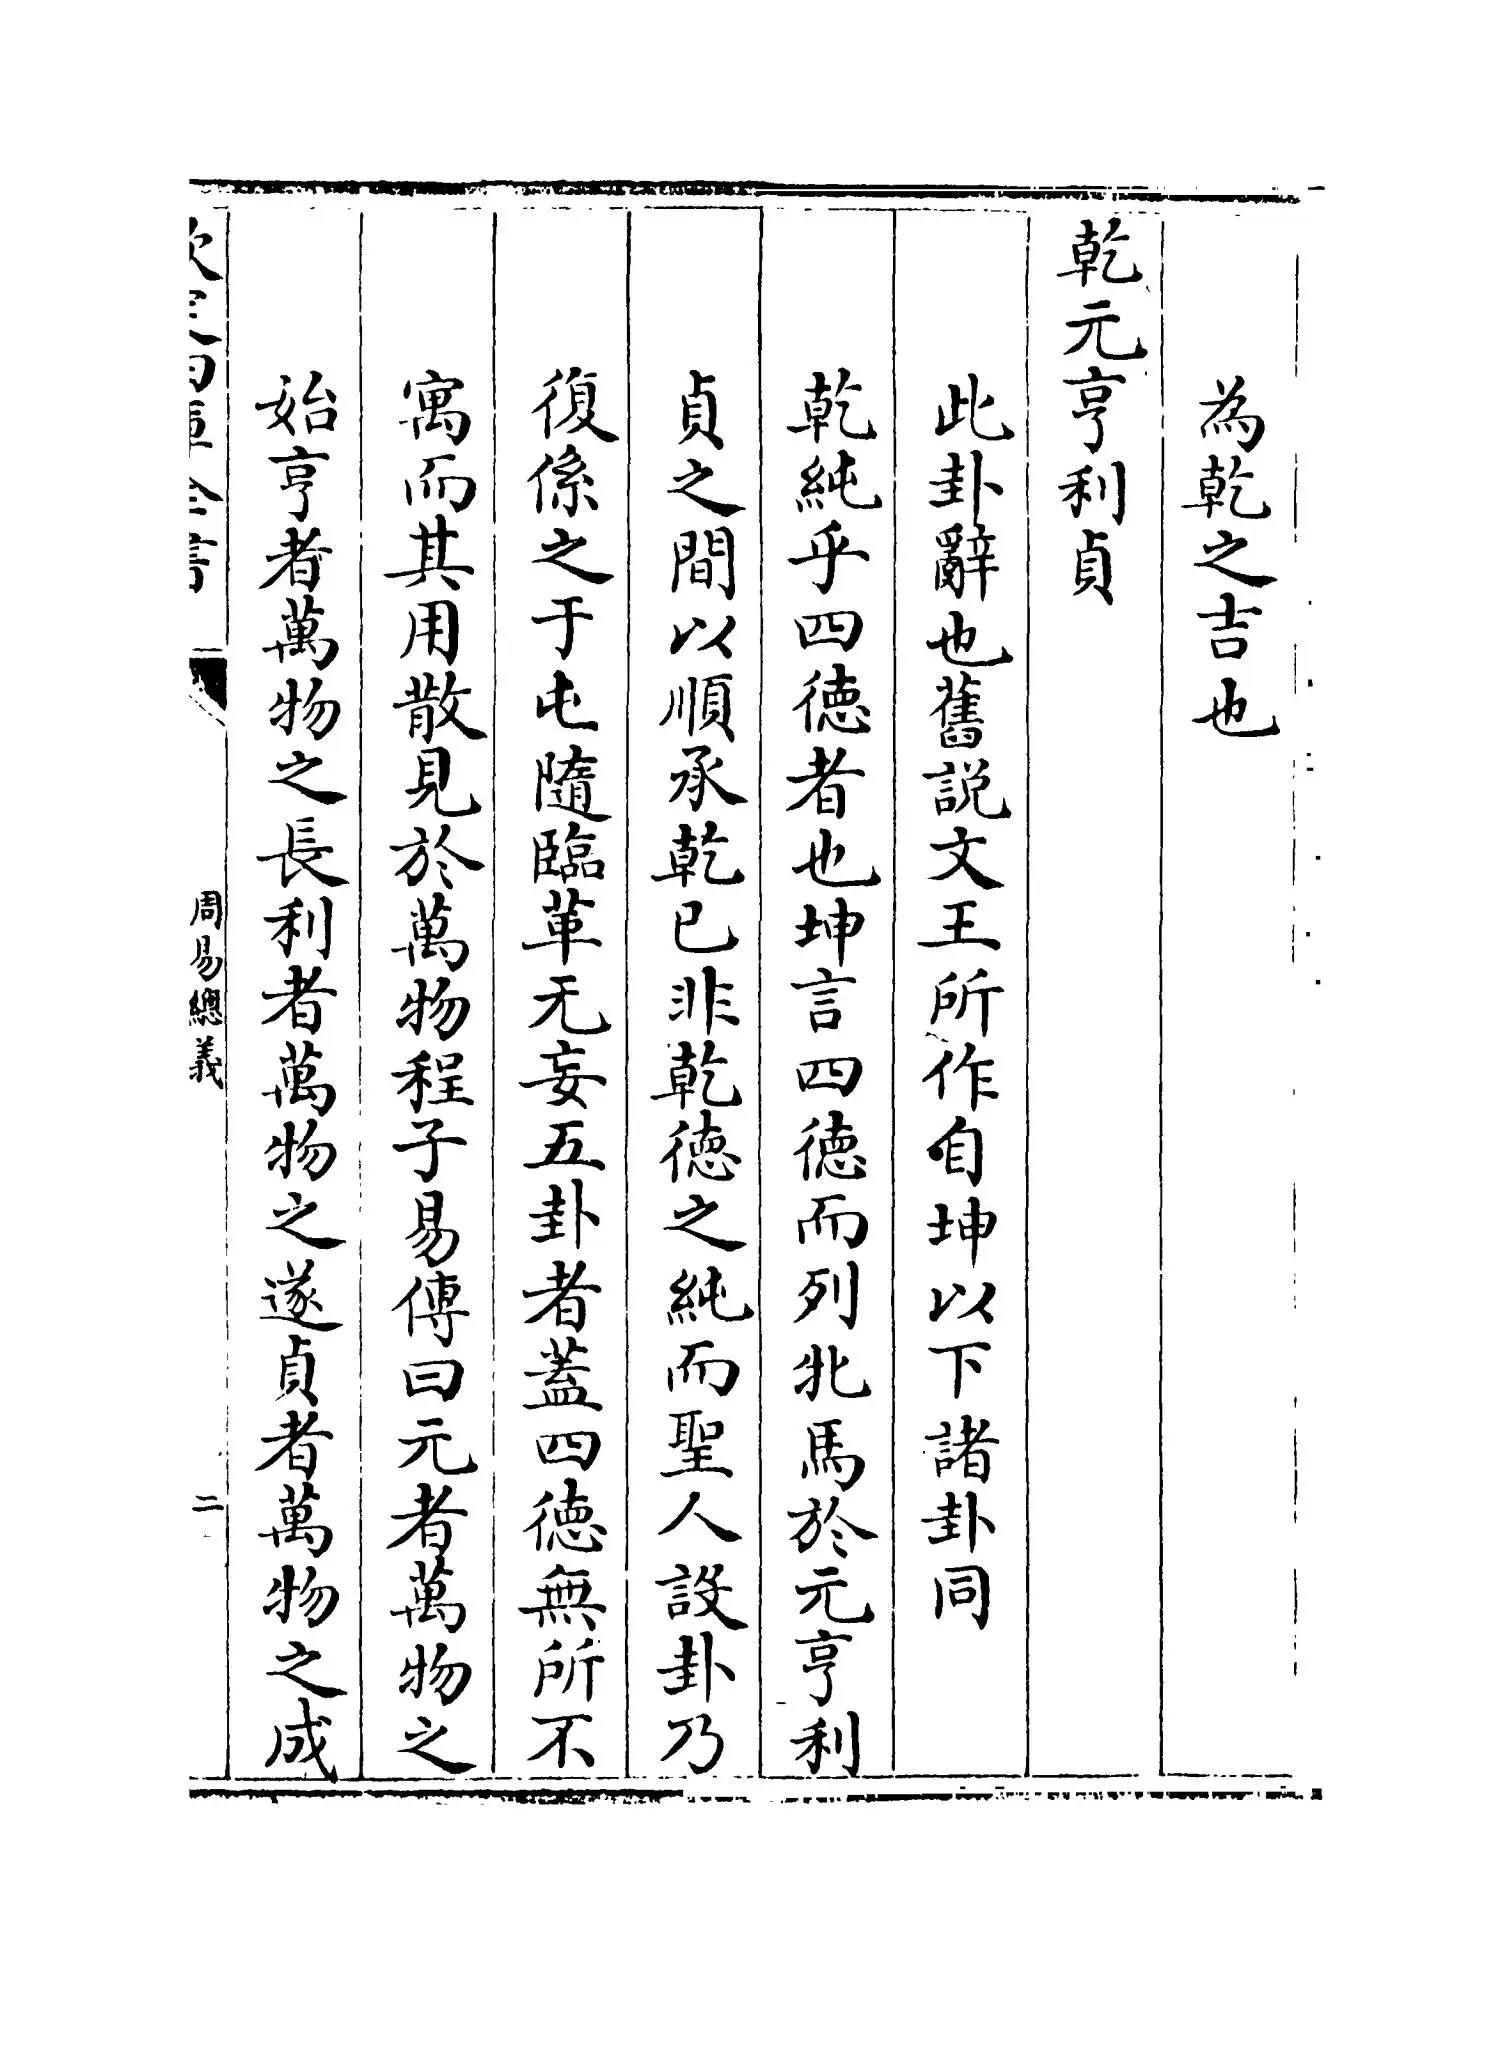 為乾之吉也
乾元亨利貞
此卦辭也舊説文王所作自坤以下諸卦同
乾純乎四徳者也坤言四徳而列牝馬於元亨利
貞之間以順承乾已非乾徳之純而聖人設卦乃
復係之于屯隨臨革无妄五卦者蓋四徳無所不
寓而其用散見於萬物程子易傳曰元者萬物之
始亨者萬物之長利者萬物之遂貞者萬物之成
欽定四庫全書
周易總義
二